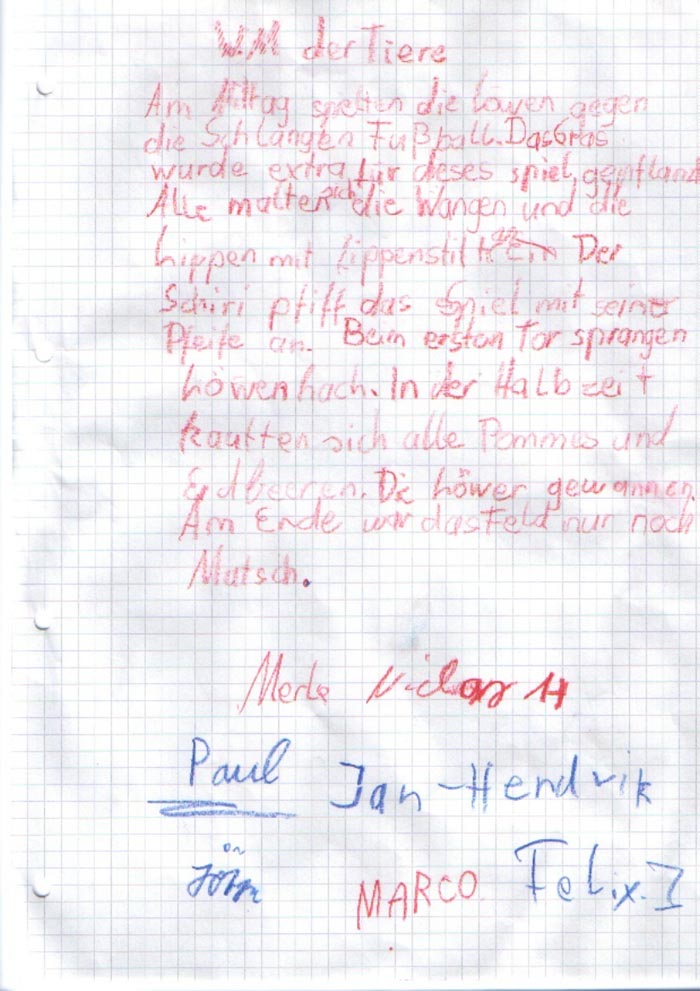 W.M der Tiere
Am Mittag spielten die Löwen gegen
die Schlangen Fußball. Das Gras
wurde extra für dieses spiel gepflanz
Alle malten sich die Wangen und die
Lippen mit Lippenstift an Der
Schiri pfiff das Spiel mit seiner
Pfeife an. Beim ersten Tor sprangen
Löwen hoch. In der Halbzeit
kauften sich alle Pommes und
Erdbeeren. Die Löwen gewannen.
Am Ende war das Feld nur noch
Matsch.
Merle Niclas H
Paul Jan-Hendrik
MARCO Felix.I